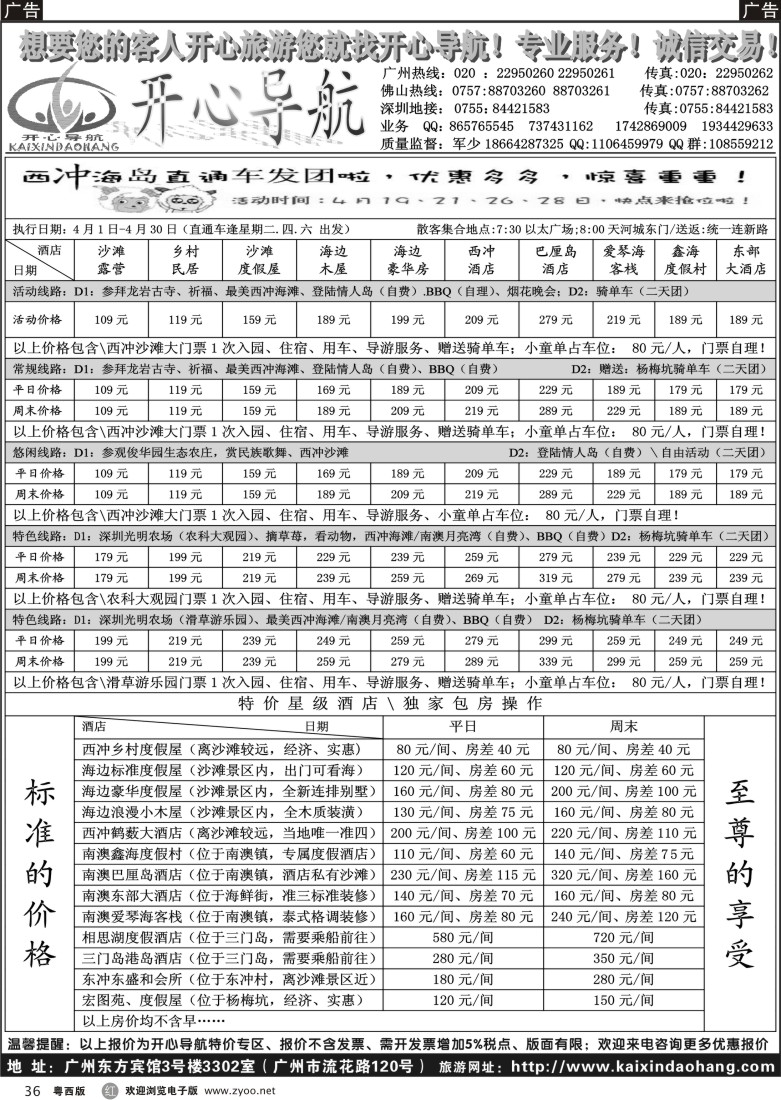 广告
广告
想要您的客人开心旅游您就找开心导航！专业服务！诚信交易！
开心导航
KAIXINDAOHANG
开心导航
广州热线：020 ：22950260 22950261 传真:020：22950262
佛山热线：0757:88703260 88703261 传真:0757:88703262
深圳地接：0755：84421583 传真:0755:84421583
业务 QQ：865765545 737431162 1742869009 1934429633
质量监督：军少 18664287325 QQ:1106459979 QQ 群:108559212
西冲海岛直通车发团啦，优惠多多，惊喜重重！
活动时间：4月19、21、26、28日，快点来抢位啦！
执行日期：4 月 1 日-4 月 30 日（直通车逢星期二.四.六 出发） 散客集合地点:7:30 以太广场;8:00 天河城东门/送返:统一连新路
酒店 日期 沙滩露营 乡村民居 沙滩度假屋 海边木屋 海边豪华房 西冲酒店 巴厘岛酒店 爱琴海客栈 鑫海度假村 东部大酒店
活动线路：D1：参拜龙岩古寺、祈福、最美西冲海滩、登陆情人岛（自费）.BBQ（自理）、烟花晚会；D2：骑单车（二天团）
活动价格 109 元 119 元 159 元 189 元 199 元 209 元 279 元 219 元 189 元 189 元
以上价格包含\西冲沙滩大门票 1 次入园、住宿、用车、导游服务、赠送骑单车；小童单占车位： 80 元/人，门票自理！
常规线路：D1：参拜龙岩古寺、祈福、最美西冲海滩、登陆情人岛（自费）、BBQ（自费） D2：赠送：杨梅坑骑单车（二天团）
平日价格 109 元 119 元 159 元 169 元 189 元 209 元 229 元 189 元 179 元 179 元
周末价格 109 元 119 元 159 元 189 元 209 元 219 元 289 元 229 元 189 元 189 元
以上价格包含\西冲沙滩大门票 1 次入园、住宿、用车、导游服务、赠送骑单车；小童单占车位： 80 元/人，门票自理！
悠闲线路：D1：参观俊华园生态农庄，赏民族歌舞、西冲沙滩 D2：登陆情人岛（自费）\自由活动（二天团）
平日价格 109 元 119 元 159 元 169 元 189 元 209 元 229 元 189 元 179 元 179 元
周末价格 109 元 119 元 159 元 189 元 209 元 219 元 289 元 229 元 189 元 189 元
以上价格包含\西冲沙滩大门票 1 次入园、住宿、用车、导游服务、小童单占车位： 80 元/人，门票自理！
特色线路：D1：深圳光明农场（农科大观园）、摘草莓，看动物，西冲海滩/南澳月亮湾（自费）、BBQ（自费）D2：杨梅坑骑单车（二天团）
平日价格 179 元 199 元 219 元 229 元 239 元 259 元 279 元 239 元 229 元 229 元
周末价格 179 元 199 元 219 元 239 元 259 元 269 元 319 元 279 元 239 元 239 元
以上价格包含\农科大观园门票 1 次入园、住宿、用车、导游服务、赠送骑单车；小童单占车位： 80 元/人，门票自理！
特色线路：D1：深圳光明农场（滑草游乐园）、最美西冲海滩/南澳月亮湾（自费）、BBQ（自费） D2：杨梅坑骑单车（二天团）
平日价格 199 元 219 元 239 元 249 元 259 元 279 元 299 元 259 元 249 元 249 元
周末价格 199 元 219 元 239 元 259 元 279 元 289 元 339 元 299 元 259 元 259 元
以上价格包含\滑草游乐园门票 1 次入园、住宿、用车、导游服务、赠送骑单车；小童单占车位： 80 元/人，门票自理！
特价星级酒店\独家包房操作
标准的价格
酒店 日期 平日 周末
西冲乡村度假屋（离沙滩较远，经济、实惠） 80 元/间、房差 40 元 80 元/间、房差 40 元
海边标准度假屋（沙滩景区内，出门可看海） 120 元/间、房差 60 元 120 元/间、房差 60 元
海边豪华度假屋（沙滩景区内，全新连排别墅） 160 元/间、房差 80 元 200 元/间、房差 100 元
海边浪漫小木屋（沙滩景区内，全木质装潢） 130 元/间、房差 75 元 160 元/间、房差 80 元
西冲鹤薮大酒店（离沙滩较远，当地唯一准四） 200 元/间、房差 100 元 220 元/间、房差 110 元
南澳鑫海度假村（位于南澳镇，专属度假酒店） 110 元/间、房差 60 元 140 元/间、房差 75 元
南澳巴厘岛酒店（位于南澳镇，酒店私有沙滩） 230 元/间、房差 115 元 320 元/间、房差 160 元
南澳东部大酒店（位于海鲜街，准三标准装修） 140 元/间、房差 70 元 160 元/间、房差 80 元
南澳爱琴海客栈（位于南澳镇，泰式格调装修） 160 元/间、房差 80 元 240 元/间、房差 120 元
相思湖度假酒店（位于三门岛，需要乘船前往） 580 元/间 720 元/间
三门岛港岛酒店（位于三门岛，需要乘船前往） 280 元/间 350 元/间
东冲东盛和会所（位于东冲村，离沙滩景区近） 180 元/间 280 元/间
宏图苑、度假屋（位于杨梅坑，经济、实惠） 120 元/间 150 元/间
以上房价均不含早……
至尊的享受
温馨提醒：以上报价为开心导航特价专区、报价不含发票、需开发票增加5%税点、版面有限；欢迎来电咨询更多优惠报价
地 址：广州东方宾馆3号楼3302室（广州市流花路120号） 旅游网址：http://www.kaixindaohang.com
36 粤西版 红 欢迎浏览电子版 www.zyoo.net